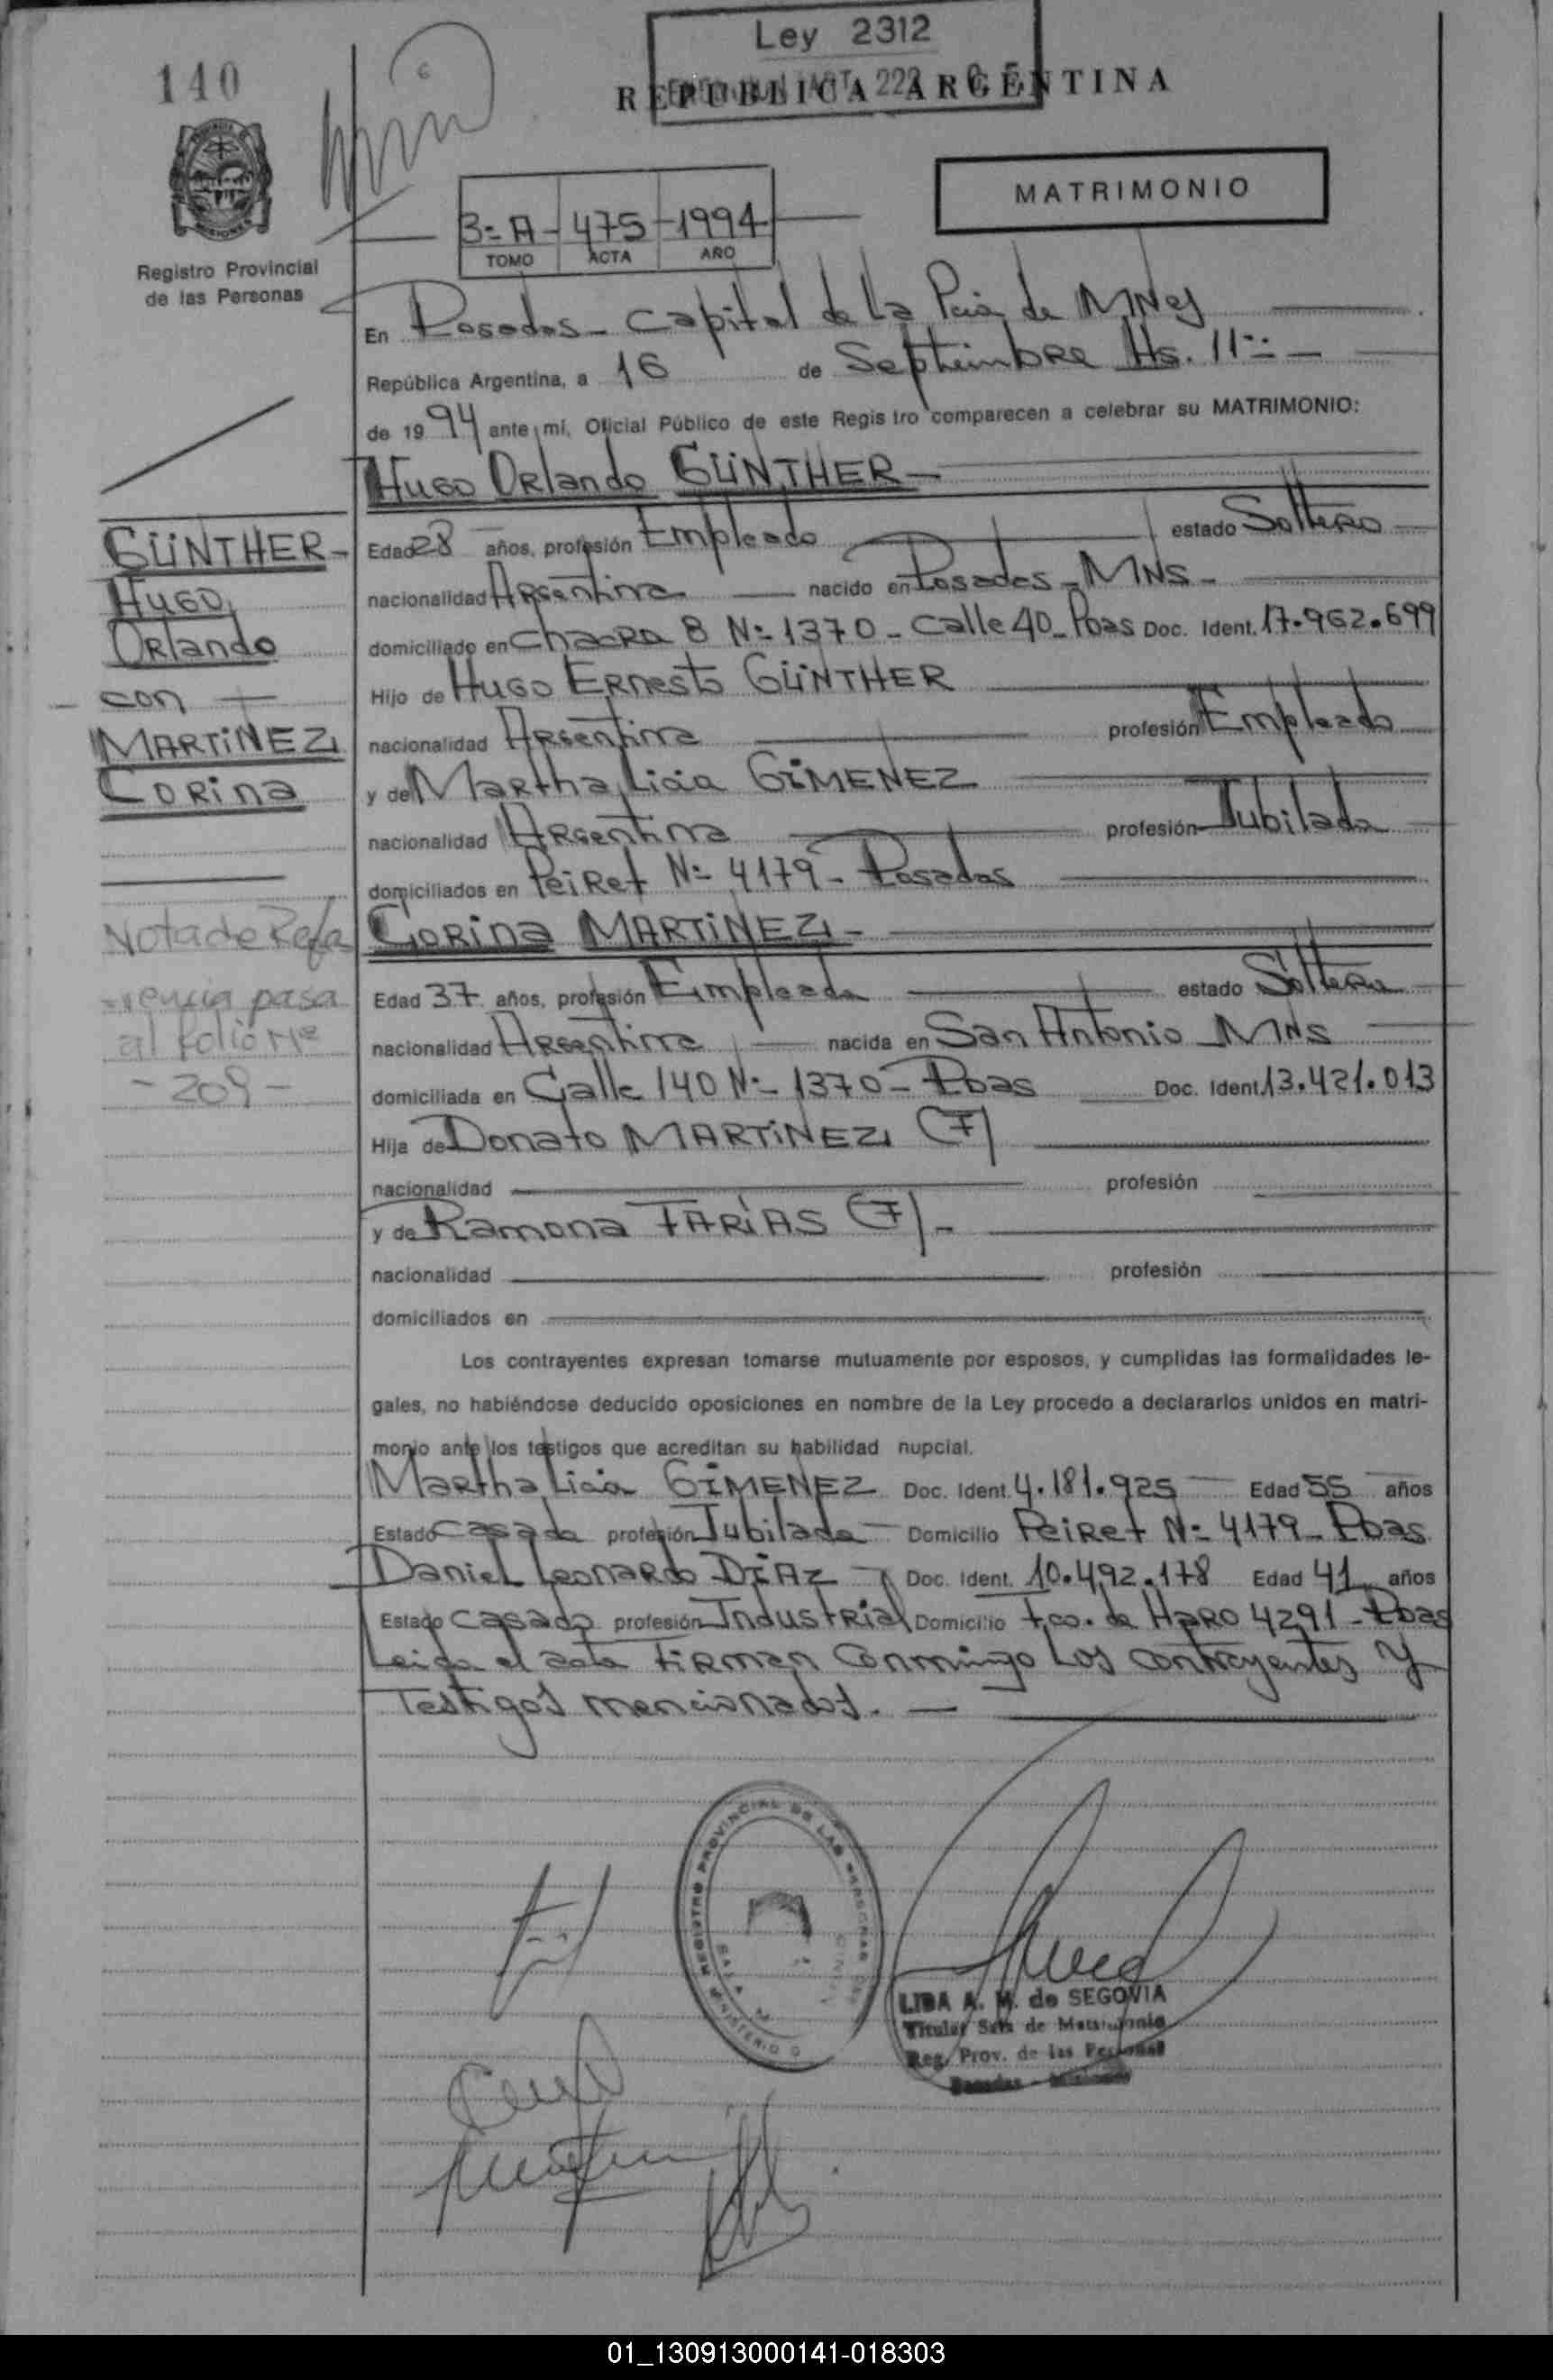 140
Ley 2312
REPUBLICA ARGENTINA
MATRIMONIO
3= A - 475 - 1994
TOMO ACTA AÑO
Registro Provincial
de las Personas
En Posadas - Capital de la Pcia de MNes
República Argentina, a 16 de Septiembre Hs. 11
de 19 94 ante mí, Oficial Público de este Registro comparecen a celebrar su MATRIMONIO:
Hugo Orlando GÜNTHER
GÜNTHER
Hugo
Orlando
con
MARTINEZ
Corina
Edad 28 años, profesión Empleado estado Soltero
nacionalidad Argentina nacido en Posadas - MNS -
domiciliado en Chacra 8 N= 1370 - Calle 40 - Pdas Doc. Ident. 17.962.699
Hijo de Hugo Ernesto GÜNTHER
nacionalidad Argentina profesión Empleado
y de Martha Licia GIMENEZ
nacionalidad Argentina profesión Jubilada
domiciliados en Peiret N= 4179 - Posadas
Corina MARTINEZ -
Nota de Refe
rencia pasa
al folio Nº
- 209 -
Edad 37 años, profesión Empleada estado Soltera
nacionalidad Argentina nacida en San Antonio MNS
domiciliada en Calle 140 N= 1370 - Pdas Doc. Ident. 13.421.013
Hija de Donato MARTINEZ (F)
nacionalidad profesión
y de Ramona FARIAS (F) -
nacionalidad profesión
domiciliados en
Los contrayentes expresan tomarse mutuamente por esposos, y cumplidas las formalidades le-
gales, no habiéndose deducido oposiciones en nombre de la Ley procedo a declararlos unidos en matri-
monio ante los testigos que acreditan su habilidad nupcial.
Martha Licia GIMENEZ Doc. Ident. 4.181.925 Edad 55 años
Estado Casada profesión Jubilada Domicilio Peiret N= 4179 - Pdas
Daniel Leonardo DIAZ Doc. Ident. 10.492.178 Edad 41 años
Estado Casado profesión Industrial Domicilio Fco. de Haro 4291 - Pdas
Leida el acta firman Conmingo Los contrayentes y
Testigos mencionados. -
REGISTRO PROVINCIAL DE LAS PERSONAS
MINISTERIO
LIDA A. M. de SEGOVIA
Titular Sala de Matrimonio
Reg. Prov. de las Personas
Posadas - Misiones
01_130913000141-018303